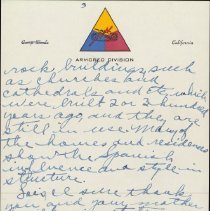 3
Camp Cooke
California
ARMORED DIVISION
rock buildings such
as churches and
cathedrals and etc, which
were built 2 or 3 hundred
years ago, and they are
still in use. Many of
the homes and residences
show the Spanish
influence and style in
structure.
sure thank
you and your mother